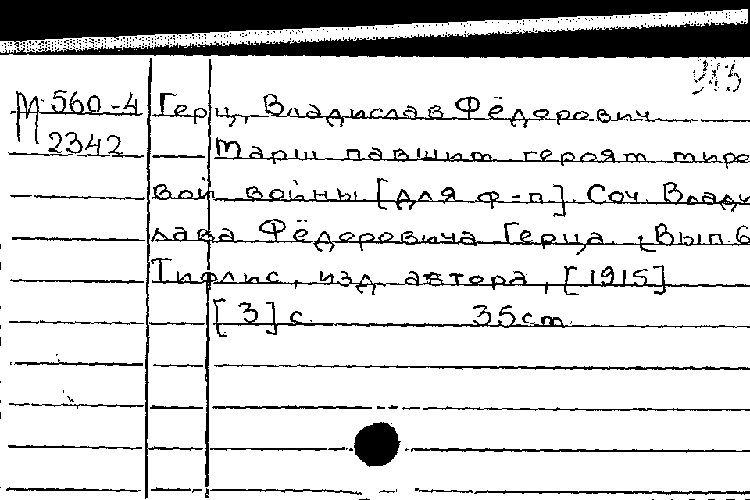 913
М 560-4 Герц, Владислав Фёдорович
2342 Марш павшим героям миро
вой войны [для ф-п]. Соч. Влади
лава Фёдоровича Герца. [Вып. 6
Тифлис, изд. автора, [1915]
[3] с. 35см.